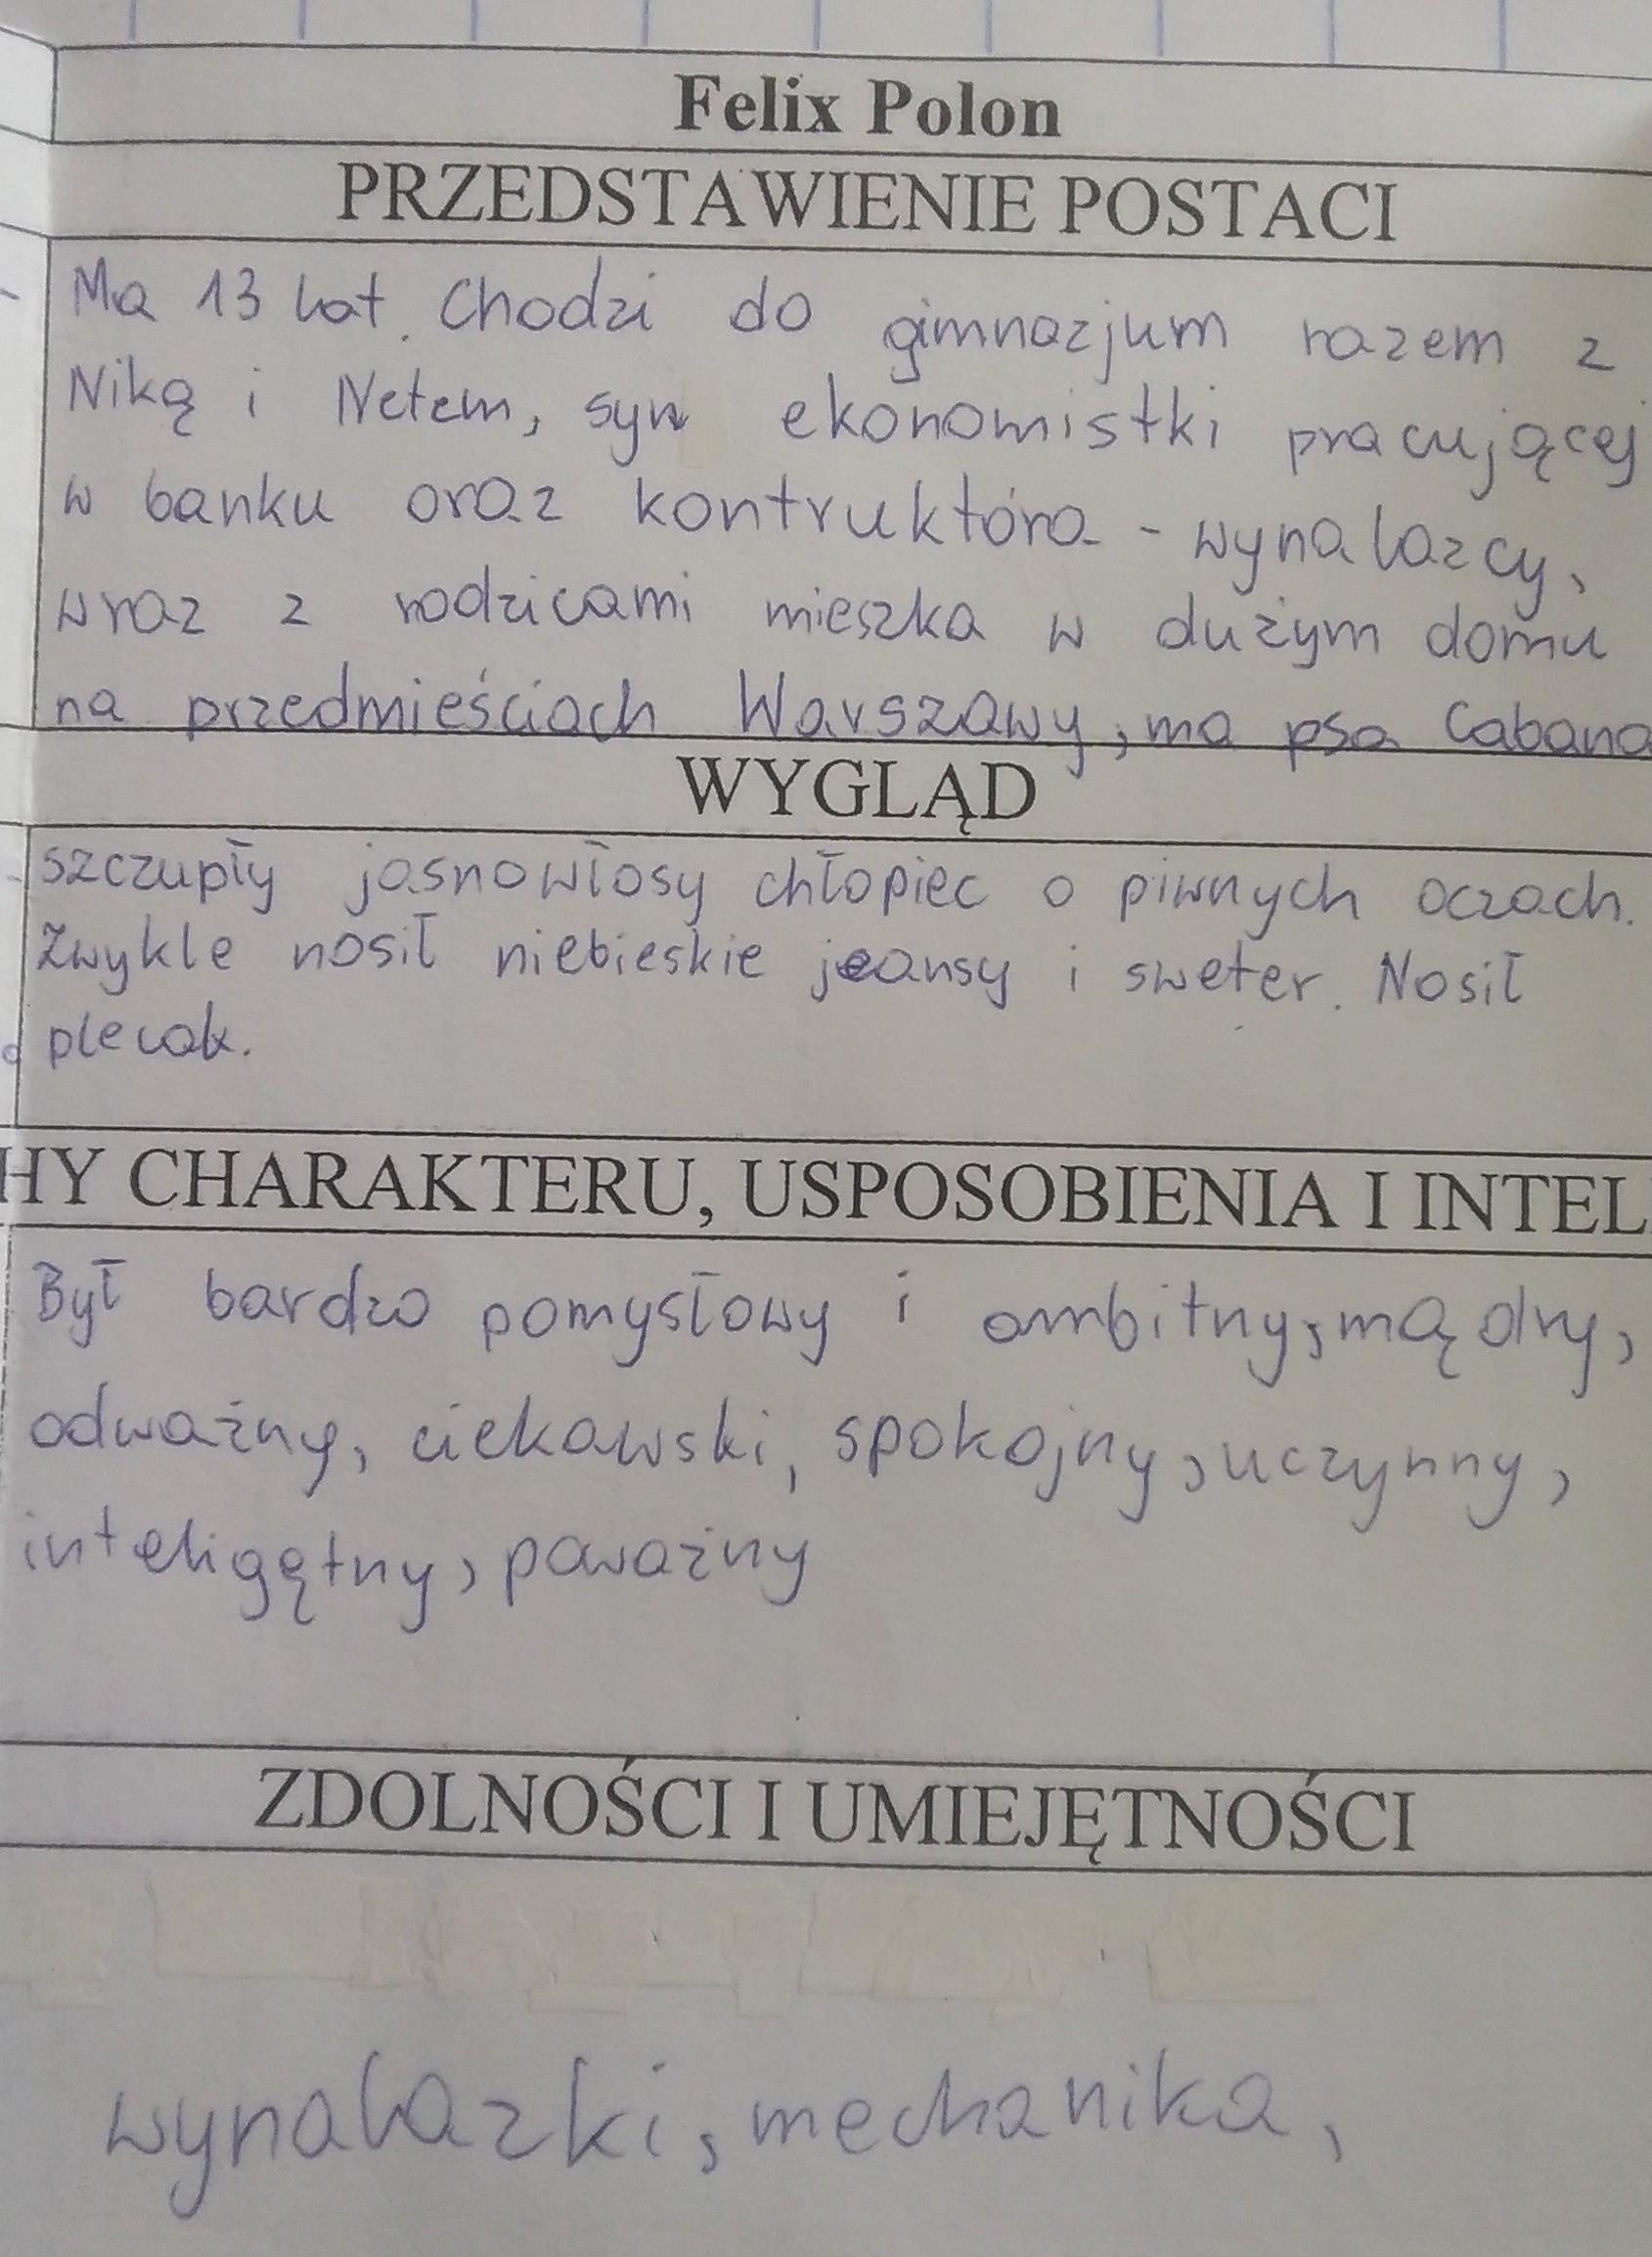 Felix Polon
PRZEDSTAWIENIE POSTACI
Ma 13 lat. Chodzi do gimnazjum razem z
Niką i Netem, syn ekonomistki pracującej
w banku oraz kontruktora - wynalazcy,
wraz z rodzicami mieszka w dużym domu
na przedmieściach Warszawy, ma psa Cabana
WYGLĄD
szczupły jasnowłosy chłopiec o piwnych oczach.
Zwykle nosił niebieskie jeansy i sweter. Nosił
plecak.
HY CHARAKTERU, USPOSOBIENIA I INTEL
Był bardzo pomysłowy i ambitny, mądry,
odważny, ciekawski, spokojny, uczynny,
inteligętny, poważny
ZDOLNOŚCI I UMIEJĘTNOŚCI
wynalazki, mechanika,